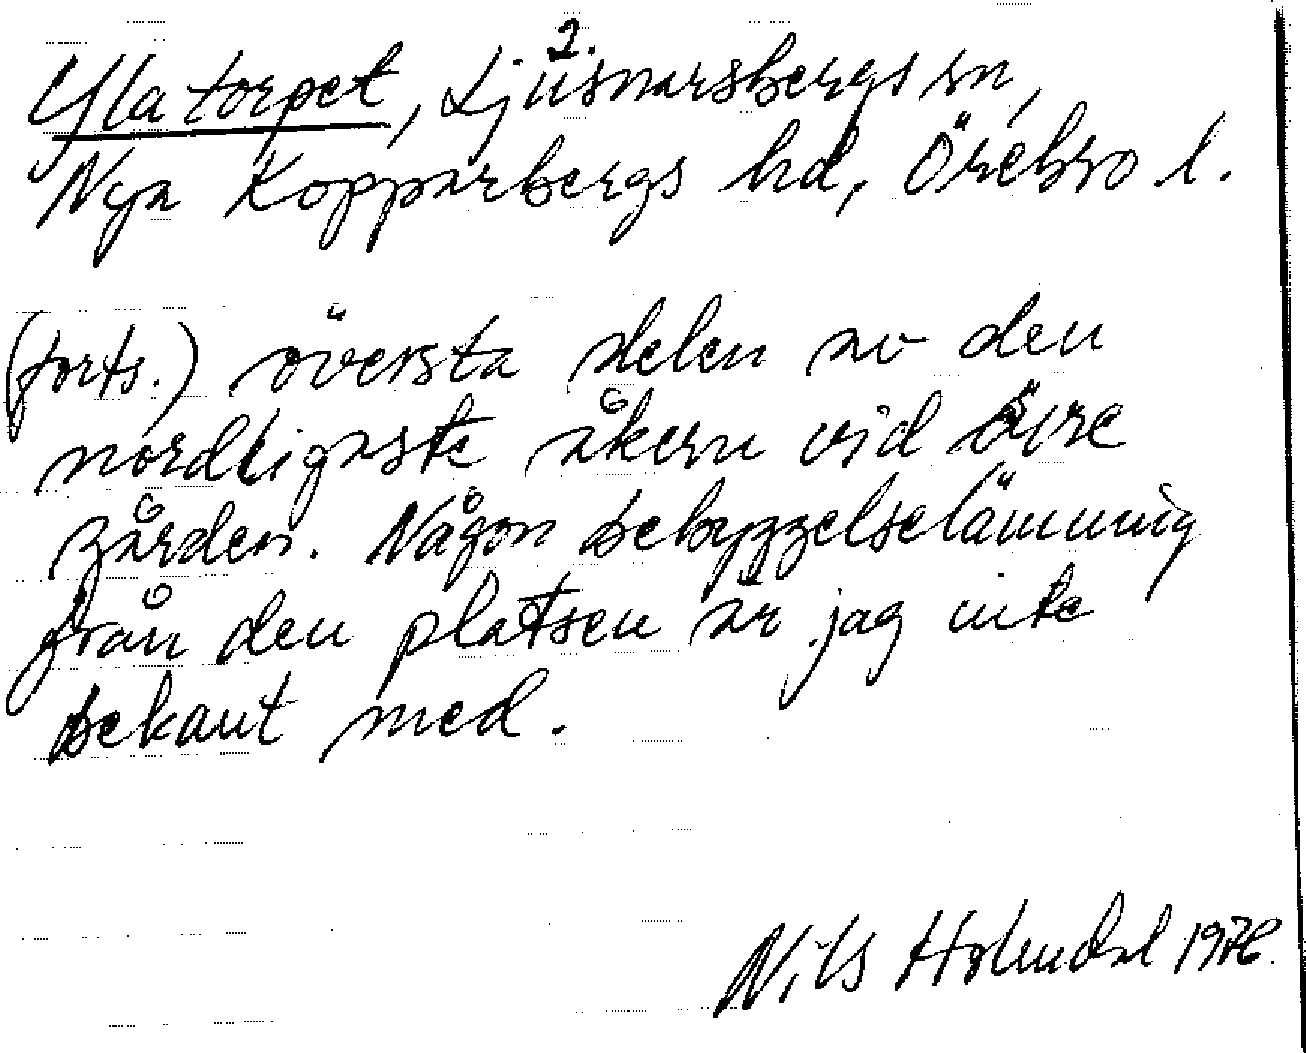 2.
Ylatorpet, Ljusnarsbergs sn,
Nya Kopparbergs hd, Örebro l.
(forts.) översta delen av den
nordligaste åkern vid övre
gården. Någon bebyggelselämning
från den platsen är jag inte
bekant med.
Nils Holmdal 1976.